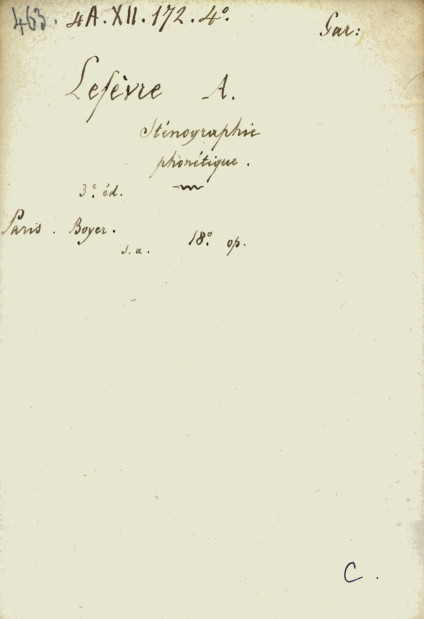 463. 4A.XII.172.4°. Gar:
Lefèvre A.
Sténographie
phonétique.
3e. éd.
Paris. Boyer.
s.a. 18° op.
C.